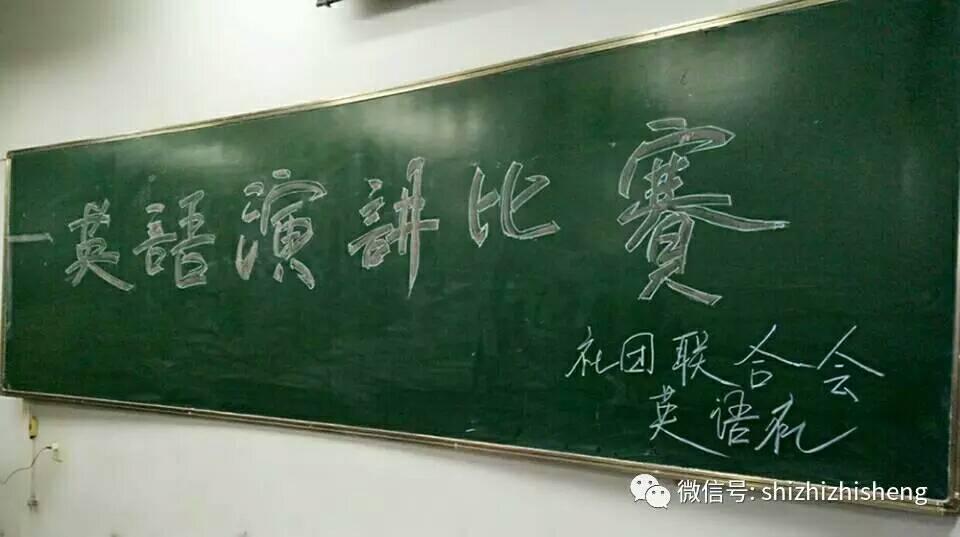 英語演講比賽
社团联合会
英语
微信号: shizhizhisheng